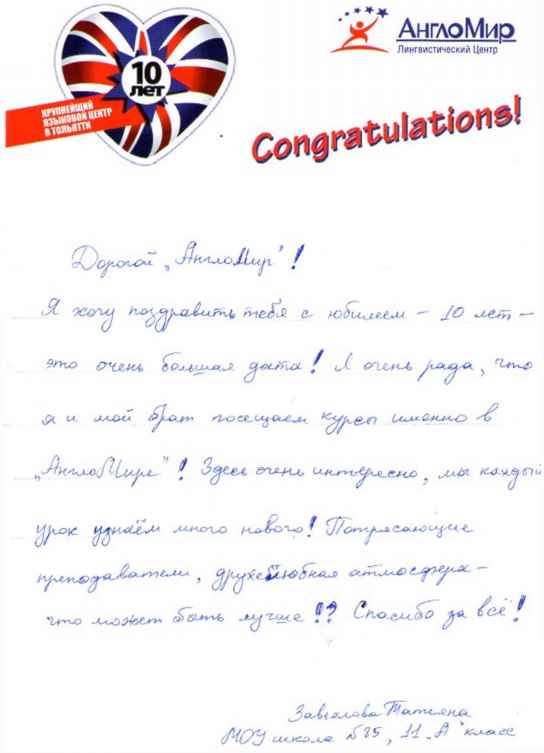 10
лет
КРУПНЕЙШИЙ
ЯЗЫКОВОЙ ЦЕНТР
В ТОЛЬЯТТИ
АнглоМир
Лингвистический Центр
Congratulations!
Дорогой „АнглоМир"!
Я хочу поздравить тебя с юбилеем – 10 лет –
это очень большая дата! Я очень рада, что
я и мой брат посещаем курсы именно в
„АнглоМире"! Здесь очень интересно, мы каждый
урок узнаём много нового! Потрясающие
преподаватели, дружелюбная атмосфера –
что может быть лучше!? Спасибо за всё!
Татьяна
МОУ школа №85, 11 „А" класс